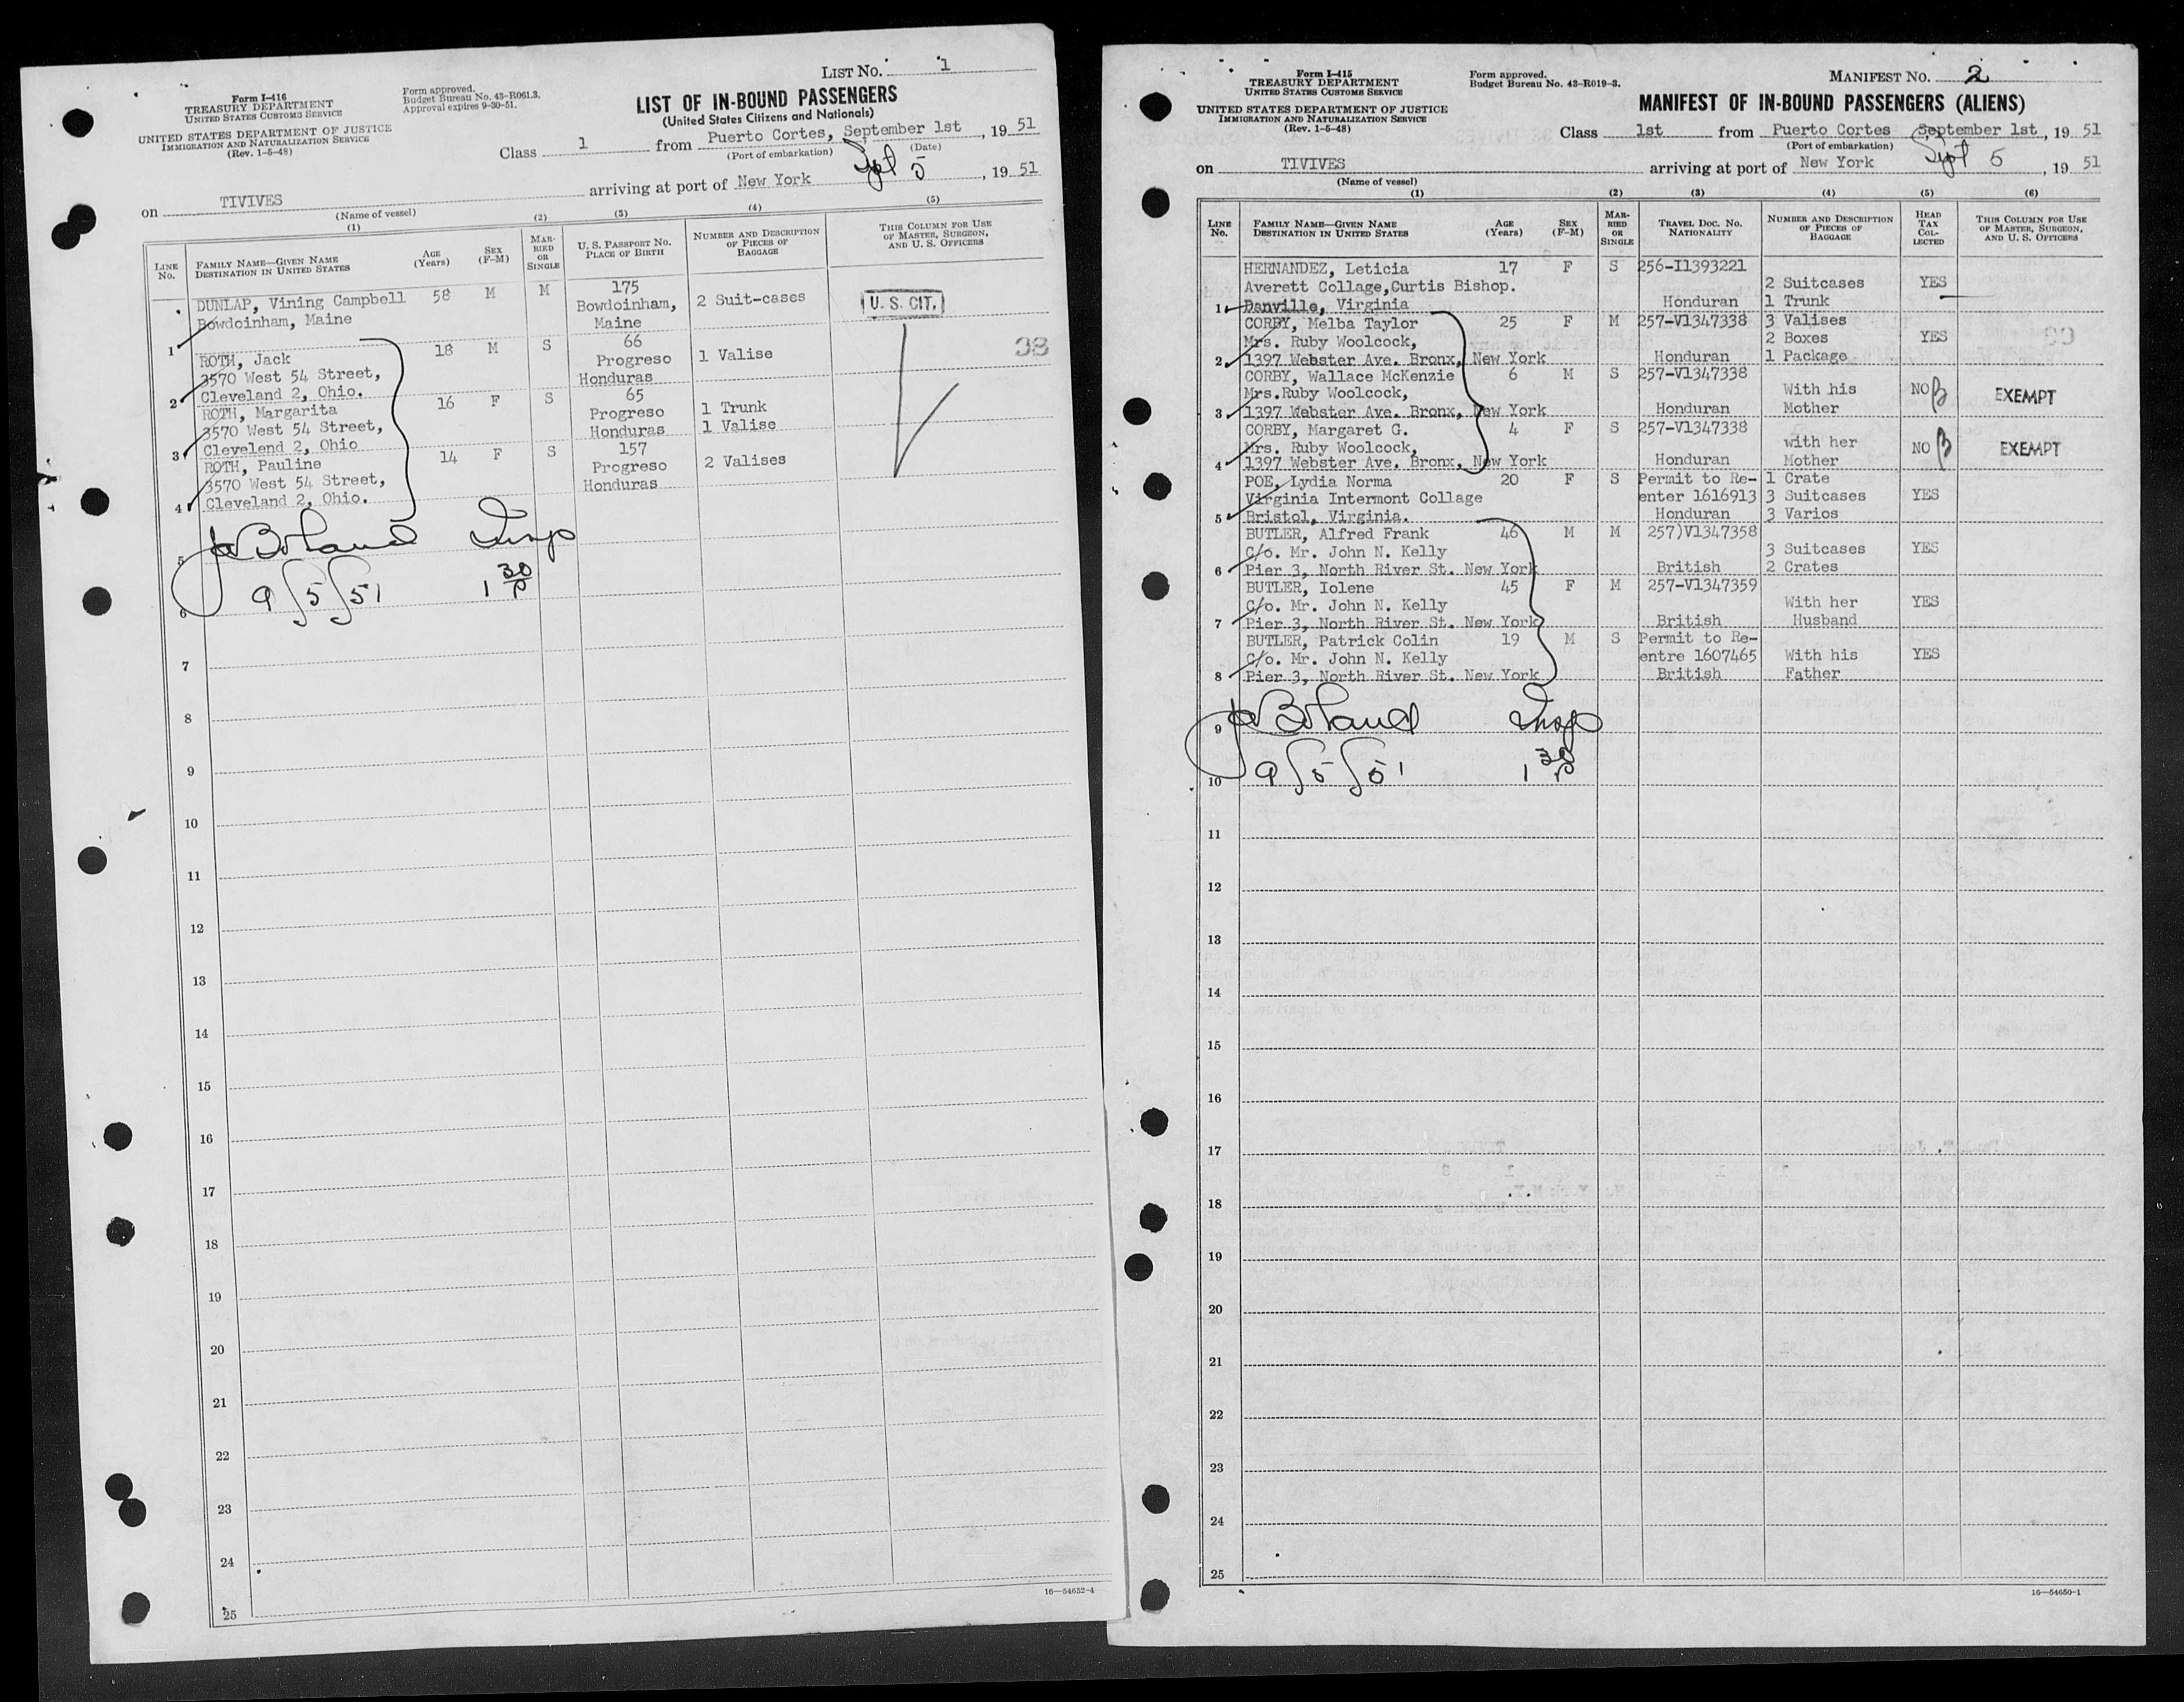 LIST No. 1
Form I-416
TREASURY DEPARTMENT
UNITED STATES CUSTOMS SERVICE
UNITED STATES DEPARTMENT OF JUSTICE
IMMIGRATION AND NATURALIZATION SERVICE
(Rev. 1-5-48)
Form approved.
Budget Bureau No. 43-R061.3.
Approval expires 9-30-51.
LIST OF IN-BOUND PASSENGERS
(United States Citizens and Nationals)
Class 1 from Puerto Cortes, September 1st, 19 51
(Port of embarkation) (Date)
on TIVIVES arriving at port of New York Sept 5, 19 51
(Name of vessel)
(1) (2) (3) (4) (5)
LINE No. FAMILY NAME—GIVEN NAME DESTINATION IN UNITED STATES AGE (Years) SEX (F-M) MARRIED OR SINGLE U. S. PASSPORT No. PLACE OF BIRTH NUMBER AND DESCRIPTION OF PIECES OF BAGGAGE THIS COLUMN FOR USE OF MASTER, SURGEON, AND U. S. OFFICERS
175
DUNLAP, Vining Campbell 58 M M Bowdoinham, 2 Suit-cases U. S. CIT.
Bowdoinham, Maine Maine
1
66
ROTH, Jack 18 M S Progreso 1 Valise 38
3570 West 54 Street, Honduras
2 Cleveland 2, Ohio.
65
ROTH, Margarita 16 F S Progreso 1 Trunk
3570 West 54 Street, Honduras 1 Valise
3 Clevelend 2, Ohio
157
ROTH, Pauline 14 F S Progreso 2 Valises
3570 West 54 Street, Honduras
4 Cleveland 2, Ohio.
5 Boland Insp
6 9/5/51 1 30 P
7
8
9
10
11
12
13
14
15
16
17
18
19
20
21
22
23
24
25
16—54652-4
Form I-415
TREASURY DEPARTMENT
UNITED STATES CUSTOMS SERVICE
UNITED STATES DEPARTMENT OF JUSTICE
IMMIGRATION AND NATURALIZATION SERVICE
(Rev. 1-5-48)
Form approved.
Budget Bureau No. 43-R019-3.
MANIFEST No. 2
MANIFEST OF IN-BOUND PASSENGERS (ALIENS)
Class 1st from Puerto Cortes September 1st, 19 51
(Port of embarkation)
on TIVIVES arriving at port of New York Sept 5, 19 51
(Name of vessel)
(1) (2) (3) (4) (5) (6)
LINE No. FAMILY NAME—GIVEN NAME DESTINATION IN UNITED STATES AGE (Years) SEX (F-M) MARRIED OR SINGLE TRAVEL DOC. No. NATIONALITY NUMBER AND DESCRIPTION OF PIECES OF BAGGAGE HEAD TAX COLLECTED THIS COLUMN FOR USE OF MASTER, SURGEON, AND U. S. OFFICERS
HERNANDEZ, Leticia 17 F S 256-I1393221
Averett Collage,Curtis Bishop. 2 Suitcases YES
1 Danville, Virginia Honduran 1 Trunk
CORBY, Melba Taylor 25 F M 257-V1347338 3 Valises
Mrs. Ruby Woolcock, 2 Boxes YES
2 1397 Webster Ave. Bronx, New York Honduran 1 Package
CORBY, Wallace McKenzie 6 M S 257-V1347338
Mrs.Ruby Woolcock, With his NO EXEMPT
3 1397 Webster Ave. Bronx, New York Honduran Mother
CORBY, Margaret G. 4 F S 257-V1347338
Mrs. Ruby Woolcock, with her NO EXEMPT
4 1397 Webster Ave. Bronx, New York Honduran Mother
POE, Lydia Norma 20 F S Permit to Re- 1 Crate
Virginia Intermont Collage enter 1616913 3 Suitcases YES
5 Bristol, Virginia. Honduran 3 Varios
BUTLER, Alfred Frank 46 M M 257)V1347358
C/o. Mr. John N. Kelly 3 Suitcases YES
6 Pier 3, North River St. New York British 2 Crates
BUTLER, Iolene 45 F M 257-V1347359
C/o. Mr. John N. Kelly With her YES
7 Pier 3, North River St. New York British Husband
BUTLER, Patrick Colin 19 M S Permit to Re-
C/o. Mr. John N. Kelly entre 1607465 With his YES
8 Pier 3, North River St. New York British Father
9 Boland Insp
10 9/5/51 1 30 P
11
12
13
14
15
16
17
18
19
20
21
22
23
24
25
16—54650-1